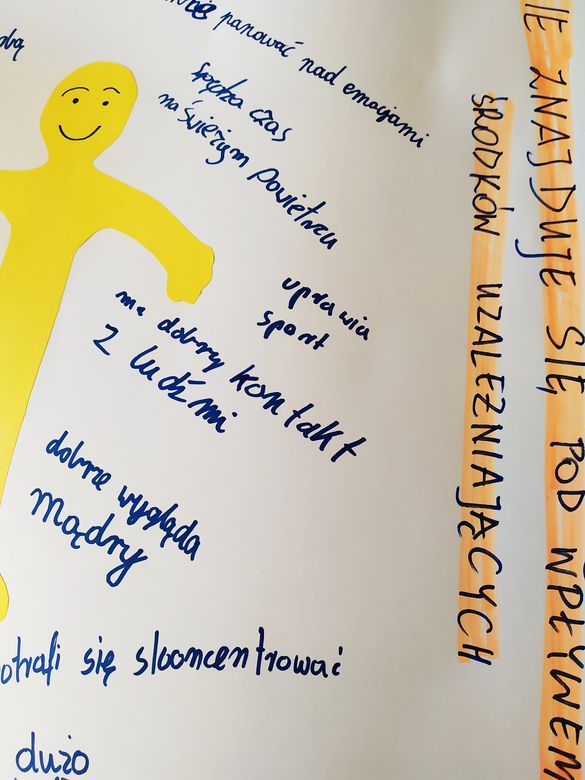 panować nad emocjami
spędza czas
na świeżym powietrzu
uprawia
sport
ma dobry kontakt
z ludźmi
dobrze wygląda
Mądry
otrafi się skoncentrować
dużo
IE ZNAJDUJE SIĘ POD WPŁYWEM
ŚRODKÓW UZALEŻNIAJĄCYCH